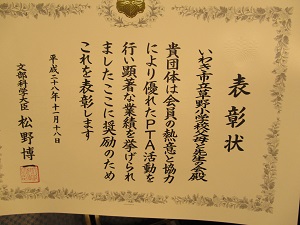 表彰状
いわき市立草野小学校父母と先生の会殿
貴団体は会員の熱意と協力
により優れたPTA活動を
行い顕著な業績を挙げられ
ましたここに奨励のため
これを表彰します
平成二十八年十一月十八日
文部科学大臣 松野博